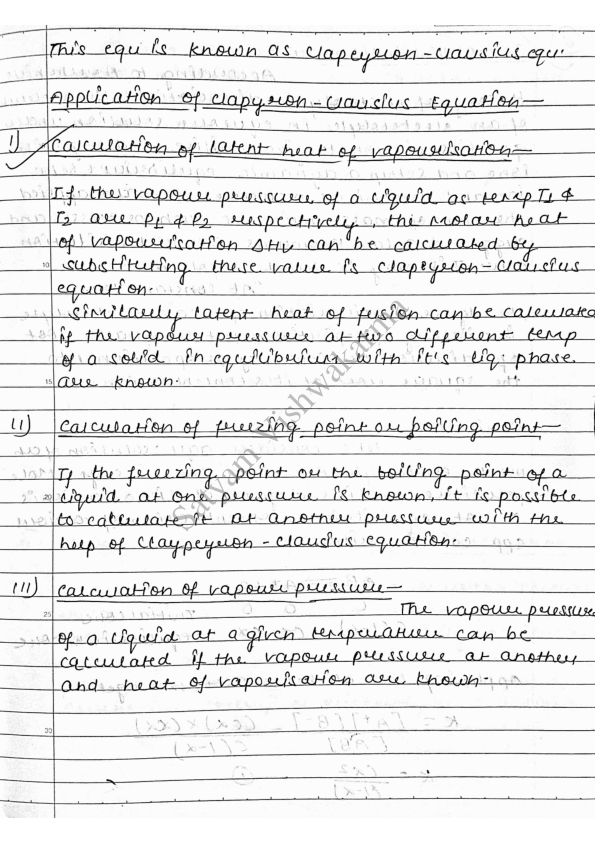 This equ is known as clapeyron-clausius equ.
Application of clapyron-clausius Equation—
I) Calculation of latent heat of vapourisation—
If the vapour pressure of a liquid as temp T1 &
T2 are P1 & P2 respectively, the molar heat
of vapourisation ΔHv can be calculated by
10 substituting these value is clapeyron-clausius
equation.
Similarly latent heat of fusion can be calculated
if the vapour pressure at two different temp
of a solid in equilibrium with it's liq. phase
15 are known.
II) Calculation of freezing point or boiling point—
If the freezing point or the boiling point of a
20 liquid at one pressure is known, it is possible
to calculate it at another pressure with the
help of Claypeyron-clausius equation.
III) Calculation of vapour pressure—
25 The vapour pressure
of a liquid at a given temperature can be
calculated if the vapour pressure at another
and heat of vaporisation are known.
30
Satyam Vishwakarma